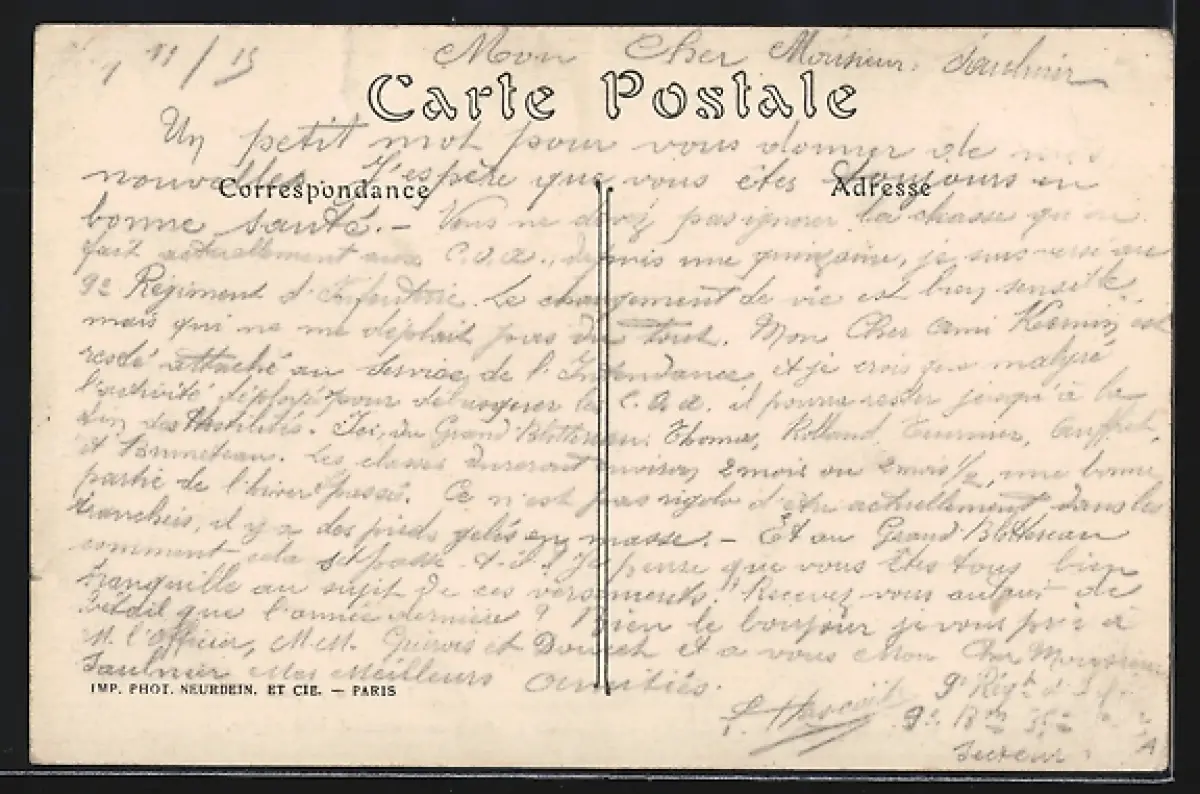 11/15
Mon Cher Monsieur Saulnier
Carte Postale
Un petit mot pour vous donner de mes
nouvelles. J'espère que vous êtes toujours en
Correspondance
Adresse
bonne santé. — Vous ne devez pas ignorer la chasse qui se
fait actuellement aux C.O.A., depuis une quinzaine, je suis versé au
9e Régiment d'Infanterie. Le changement de vie est bien sensible
mais qui ne me déplait pas du tout. Mon Cher ami est
resté attaché au Service de l'Intendance et je crois que malgré
l'activité déployé pour débusquer les C.O.A. il pourra rester jusqu'à la
fin des Hostilités. Ici, du Grand Blottereau: Thomas, Rolland, Auffret,
et Bruneteau. Les classes dureront environ 2 mois ou 2 mois 1/2, une bonne
partie de l'hiver passé. Ce n'est pas rigolo d'être actuellement dans les
tranchées, il y a des pieds gelés en masse. — Et au Grand Blottereau
comment cela se passe-t-il? Je pense que vous êtes tous bien
tranquille au sujet de ces versements. Recevez-vous autant de
bétail que l'année dernière? Bien le bonjour je vous prie à
M. l'Officier, M.M. et et à vous Mon Cher Monsieur
Saulnier Mes Meilleurs Amitiés.
IMP. PHOT. NEURDEIN. ET CIE. — PARIS
9e Régt d'
9e
Secteur